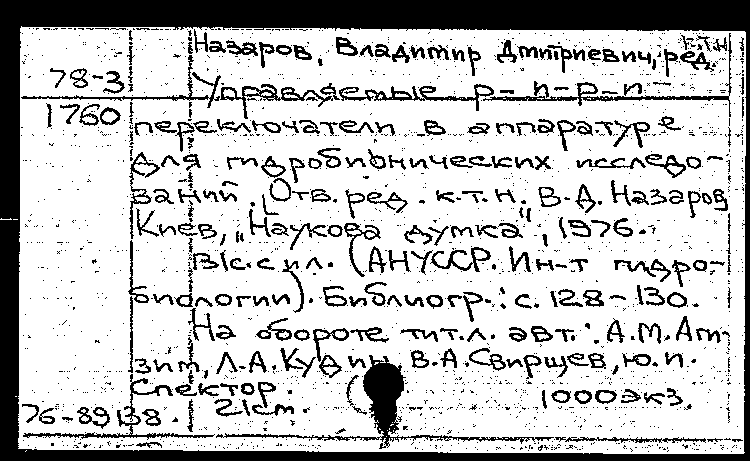 к.т.н
Назаров, Владимир Дмитриевич, ред.
78-3 Управляемые p-n-p-n-
1760 переключатели в аппаратуре
для гидробионических исследо-
ваний. Отв. ред. к.т.н. В.Д. Назаров
Киев, „Наукова думка", 1976.
131с. с ил. (АНУССР. Ин-т гидро-
биологии). Библиогр.: с. 128-130.
На обороте тит.л. авт.: А.М. Аги-
зим, Л.А. Кудин, В.А. Свирщев, Ю.И.
Спектор.
76-89138. 21см. 1000экз.